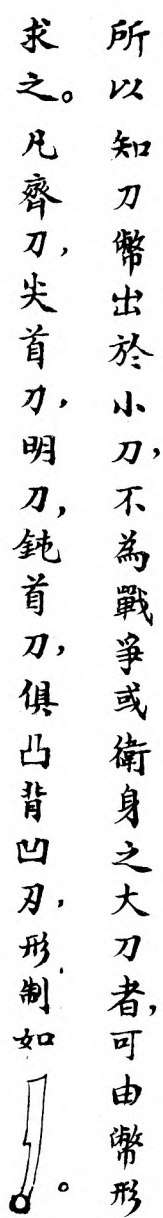 所以知刀幣出於小刀,不為戰爭或衛身之大刀者,可由幣形
求之。凡齊刀,尖首刀,明刀,鈍首刀,俱凸背凹刃,形制如。